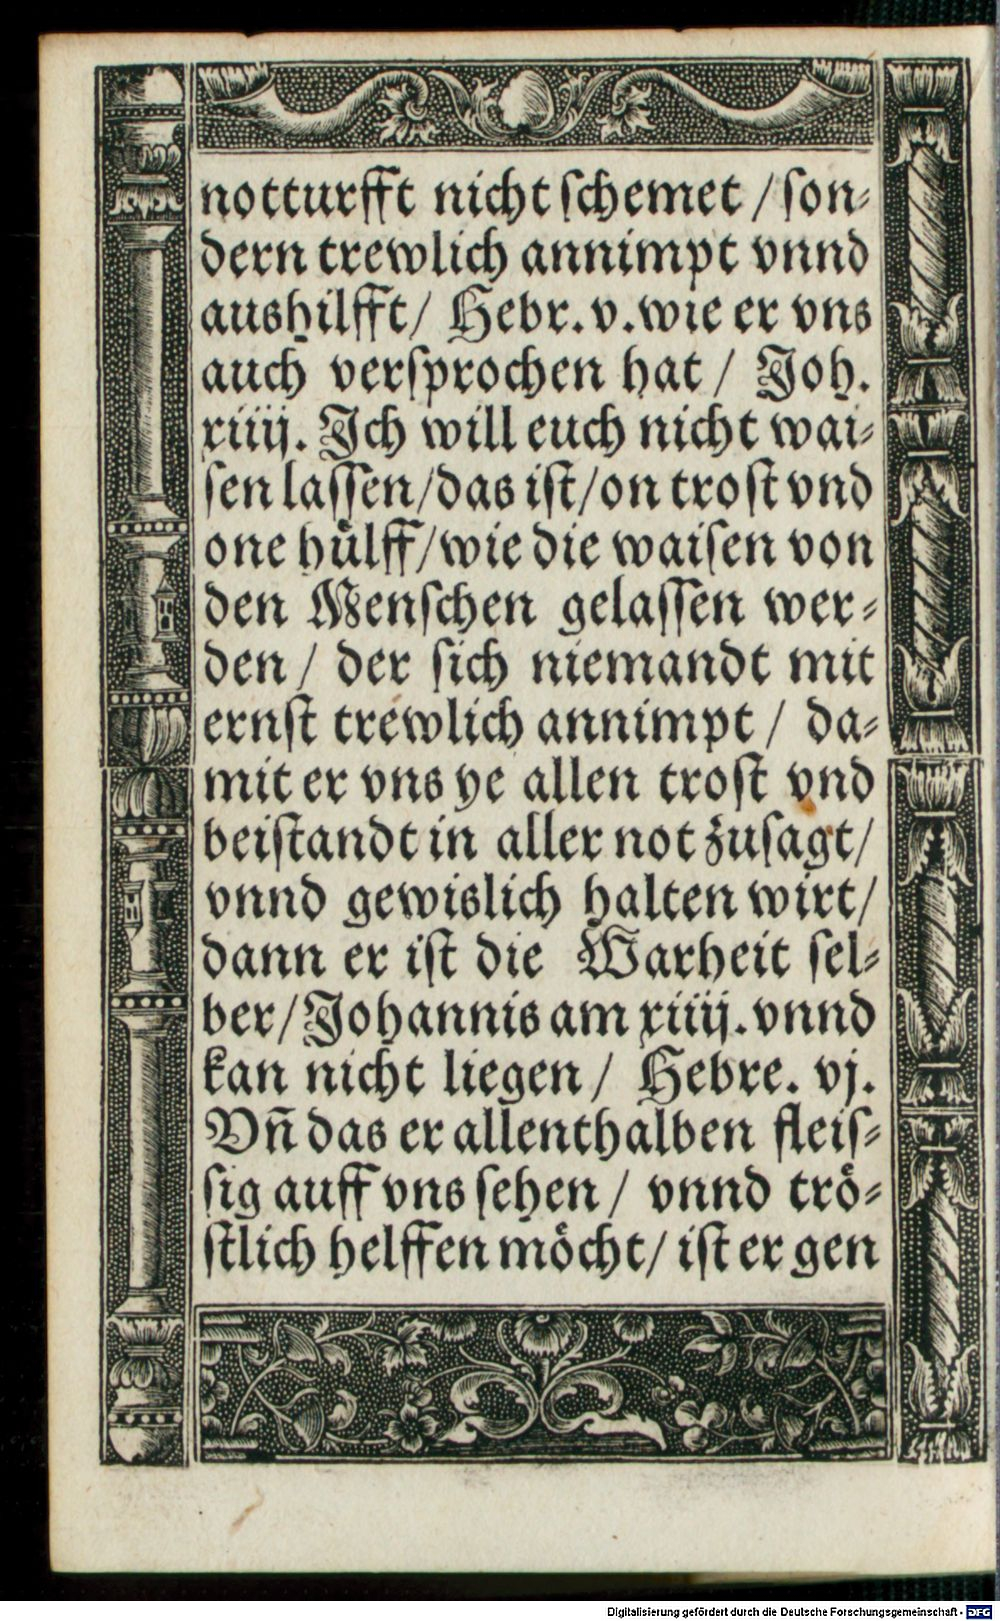 notturfft nicht schemet / son⸗
dern trewlich annimpt vnnd
aushilfft / Hebr. v. wie er vns
auch versprochen hat / Joh.
xiiij. Ich will euch nicht wai⸗
sen lassen / das ist / on trost vnd
one hülff / wie die waisen von
den Menschen gelassen wer⸗
den / der sich niemandt mit
ernst trewlich annimpt / da⸗
mit er vns ye allen trost vnd
beistandt in aller not zusagt /
vnnd gewislich halten wirt /
dann er ist die Warheit sel⸗
ber / Johannis am xiiij. vnnd
kan nicht liegen / Hebre. vj.
Vn̄ das er allenthalben fleis⸗
sig auff vns sehen / vnnd trö⸗
stlich helffen möcht / ist er gen
Digitalisierung gefördert durch die Deutsche Forschungsgemeinschaft - DFG